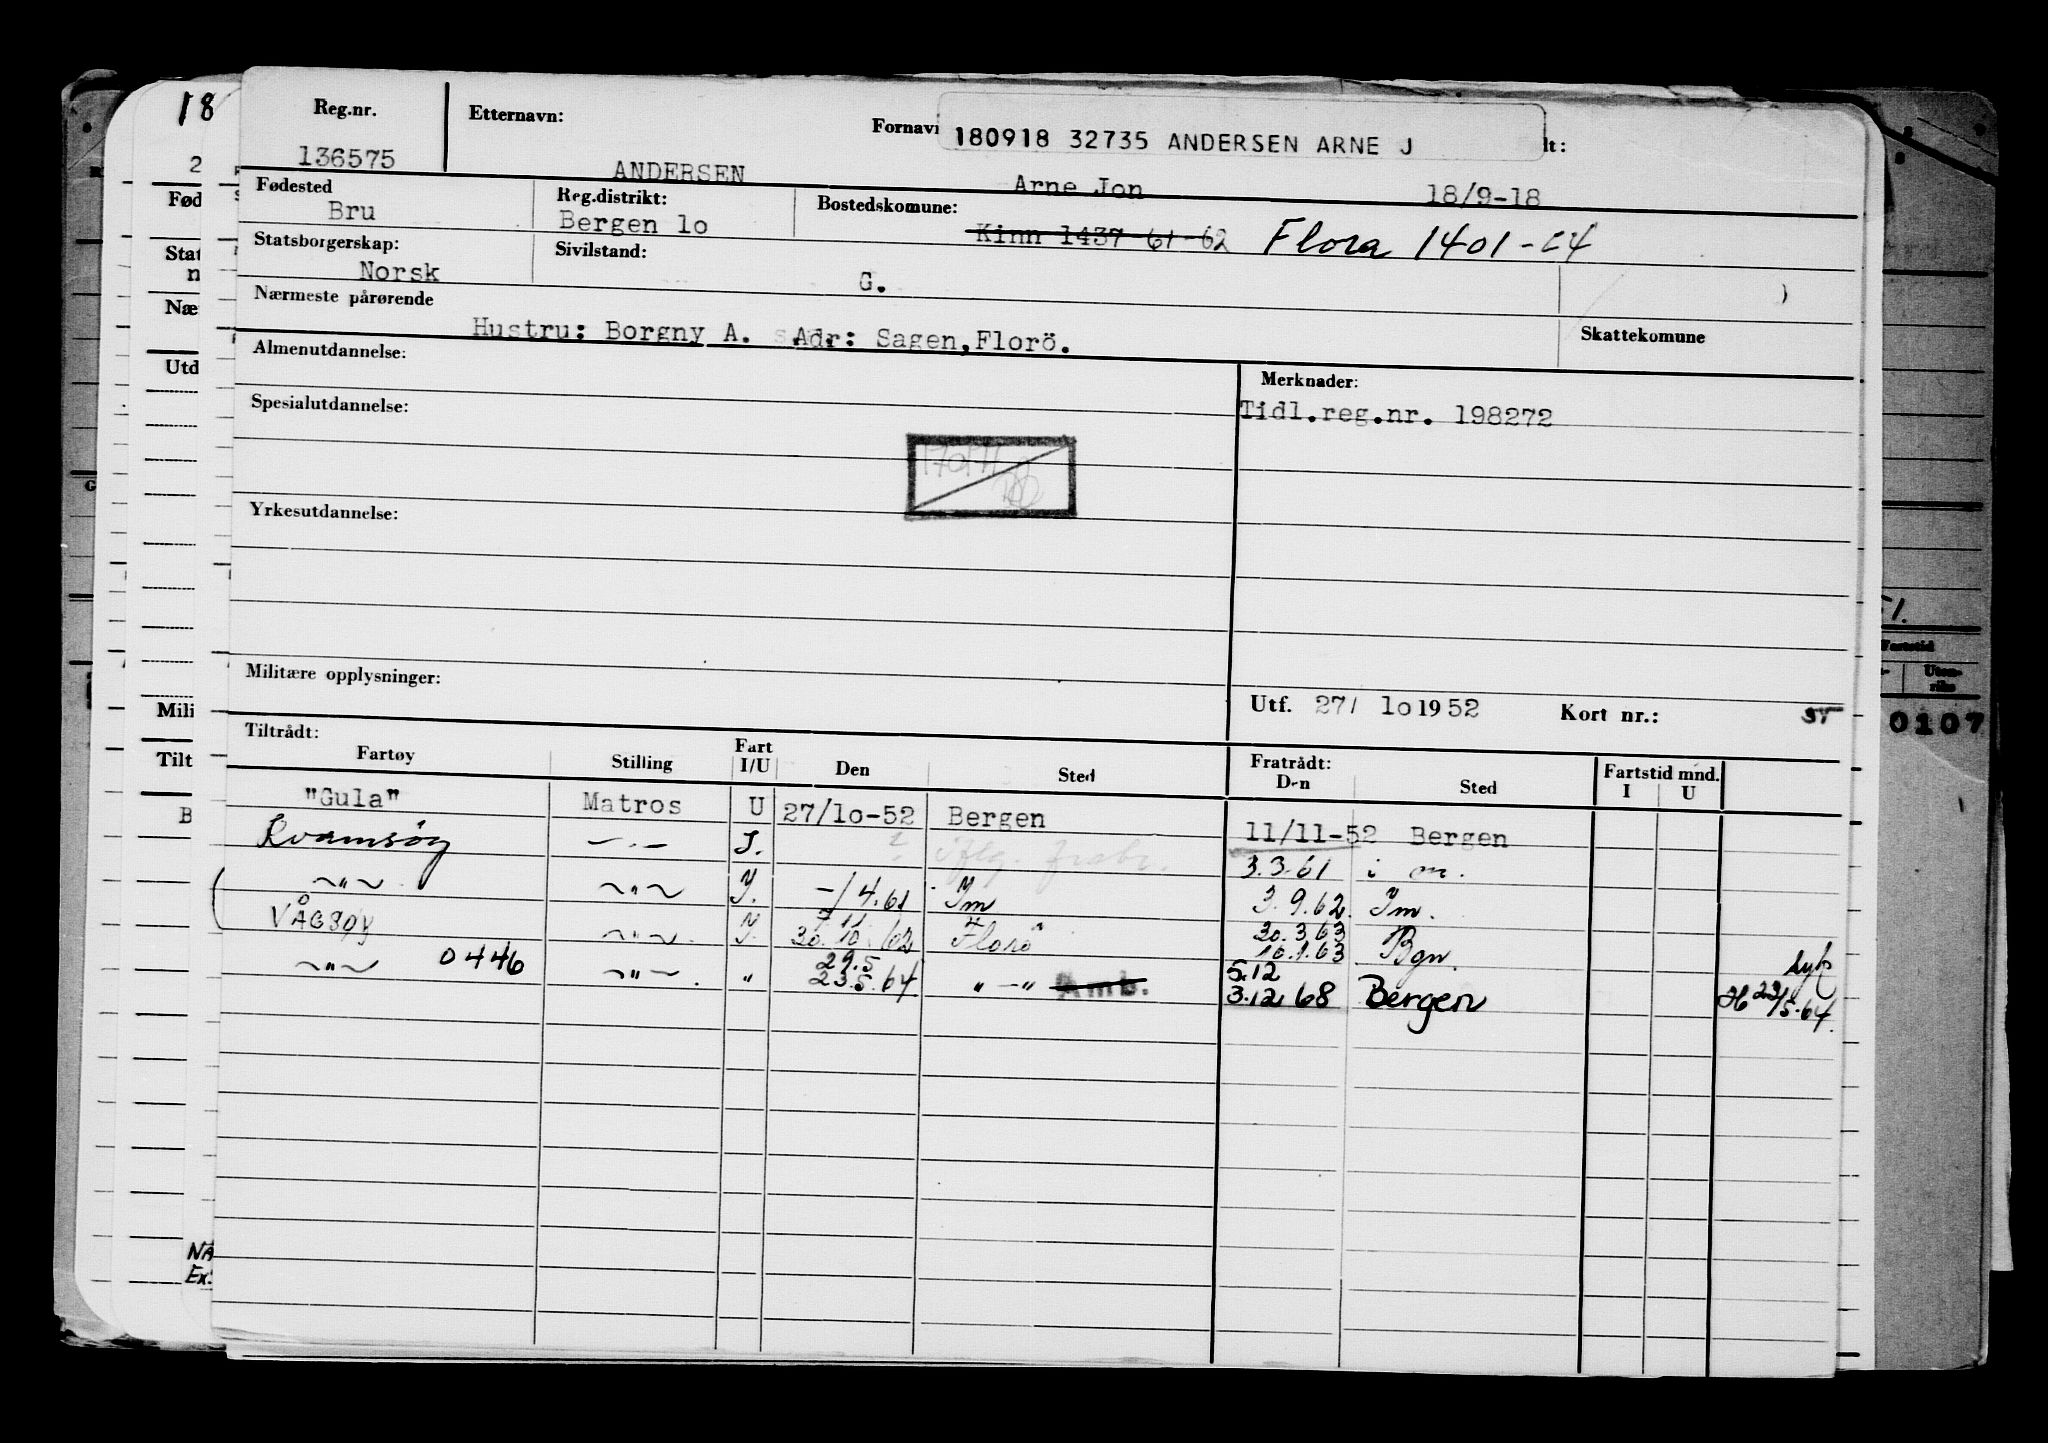 18
Reg.nr.
Etternavn:
Fornavn
180918 32735 ANDERSEN ARNE J
lt:
136575
ANDERSEN
Arne Jon
18/9-18
Fødested
Bru
Reg.distrikt:
Bergen lo
Bostedskomune:
Kinn 1437-61-62 Flora 1401-64
Statsborgerskap:
Norsk
Sivilstand:
G.
Nærmeste pårørende
Hustru: Borgny A. Adr: Sagen, Florö.
Skattekomune
Almenutdannelse:
Merknader:
Tidl.reg.nr. 198272
Spesialutdannelse:
Yrkesutdannelse:
Militære opplysninger:
Utf. 27/ lo 1952 Kort nr.:
Tiltrådt:
Fartøy Stilling Fart I/U Den Sted Fratrådt: Den Sted Fartstid mnd. I U
"Gula" Matros U 27/lo-52 Bergen 11/11-52 Bergen
Kvamsöy -"- I. ? 3.3.61 i m.
-"- -"- I. -/4.61 Im 3.9.62. Im.
VÅGSØY -"- I. 30.10.62 Florö 30.3.63 16.1.63 Bgn. syk
-"- 0446 -"- " 29.5 23.5.64 "-" Amb. 5.12 3.12 68 Bergen 23/5-64.
Fød
Stat
n
Næ
Utd
Mili
Tilt
B
NA
Ex:
51.
Fartstid
Uten-
riks
0107